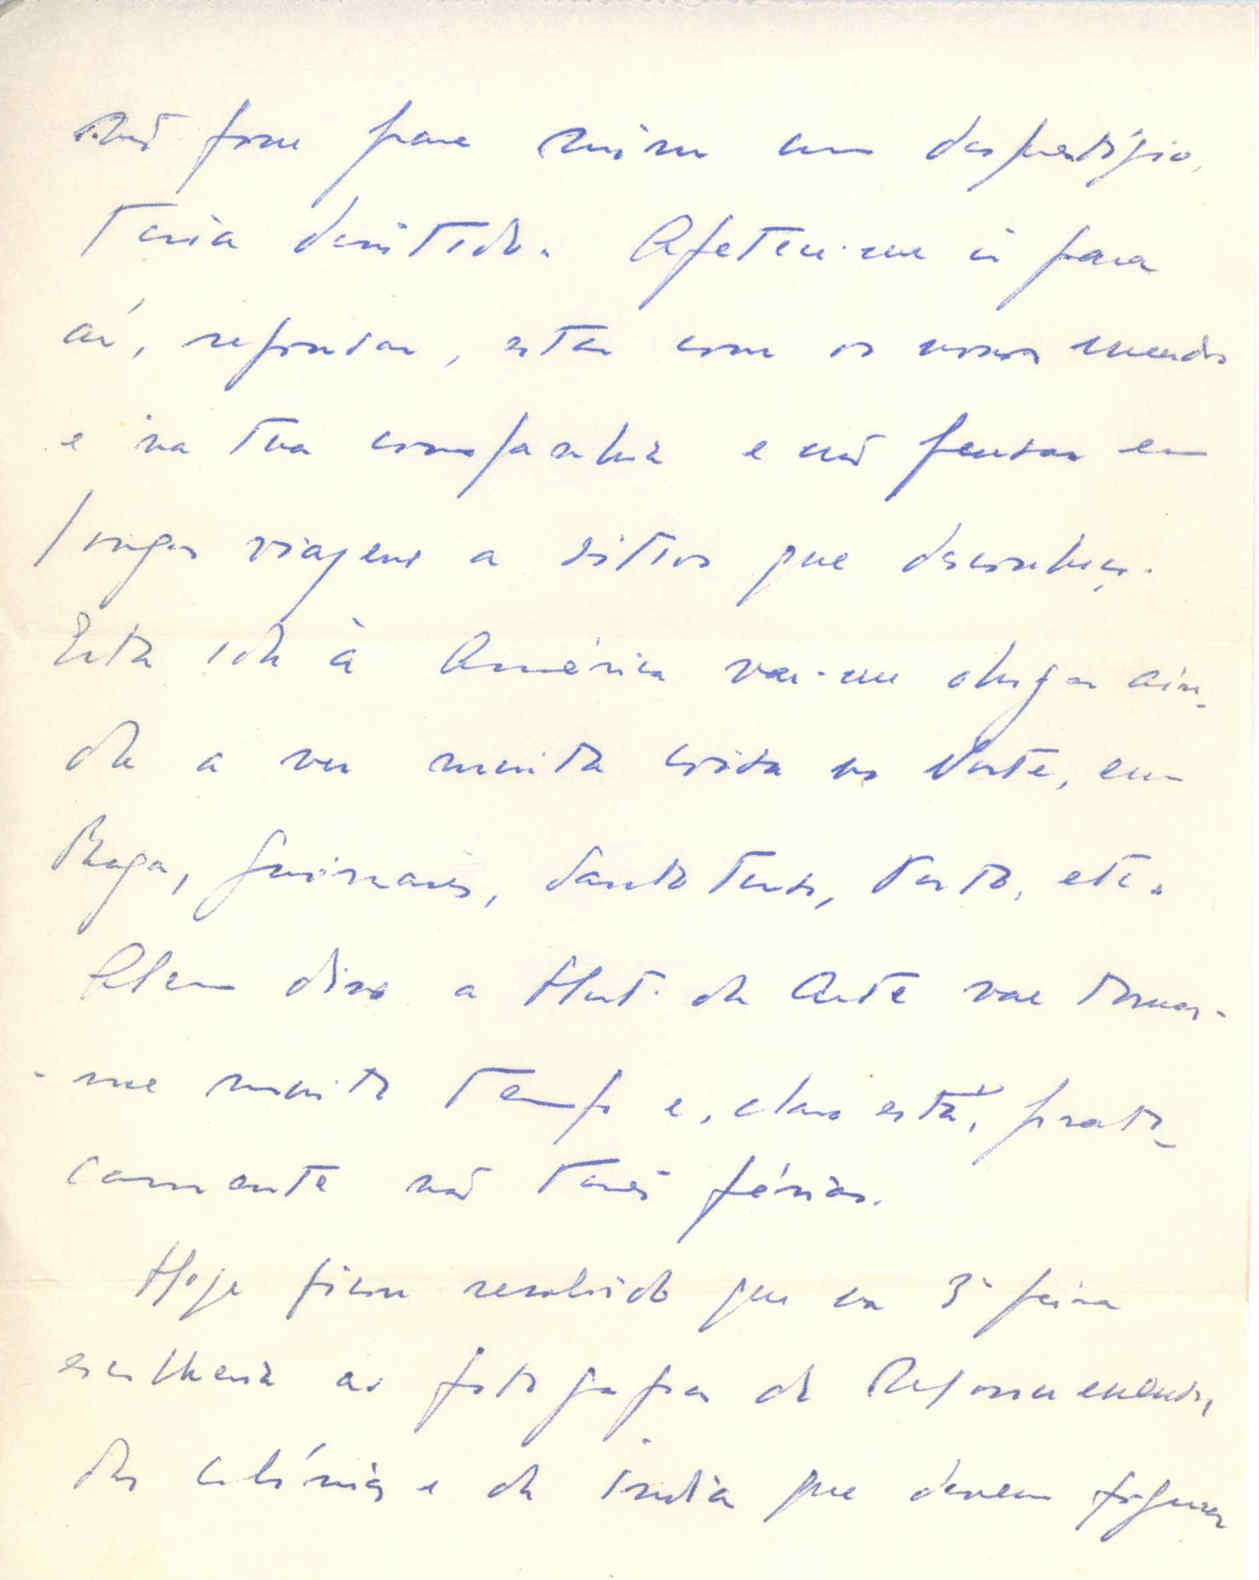 não fosse para mim um desprestígio,
teria desistido. Apetece-me ir para
aí, repousar, estar com os nossos meudos
e na tua companhia e não pensar em
longas viagens a sitios que desconheço.
Esta ida à América vai-me obrigar ain-
da a ver muita coisa no Norte, em
Braga, Guimarães, Santo Tirso, Porto, etc.
Alem disso a Hist. da Arte vai tomar-
-me muito tempo e, claro está, prati-
camente não terei férias.
Hoje ficou resolvido que na 3ª feira
escolheria as fotografias de
das colónias e da India que devem figurar